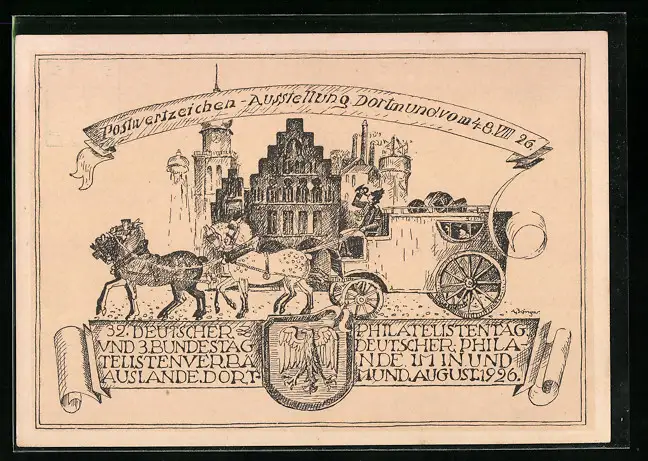 Postwertzeichen-Ausstellung Dortmund vom 4-8. VIII 26.
32. DEUTSCHER PHILATELISTENTAG
UND 3. BUNDESTAG DEUTSCHER PHILA-
TELISTENVERBÄNDE IM IN UND
AUSLANDE. DORTMUND, AUGUST 1926.